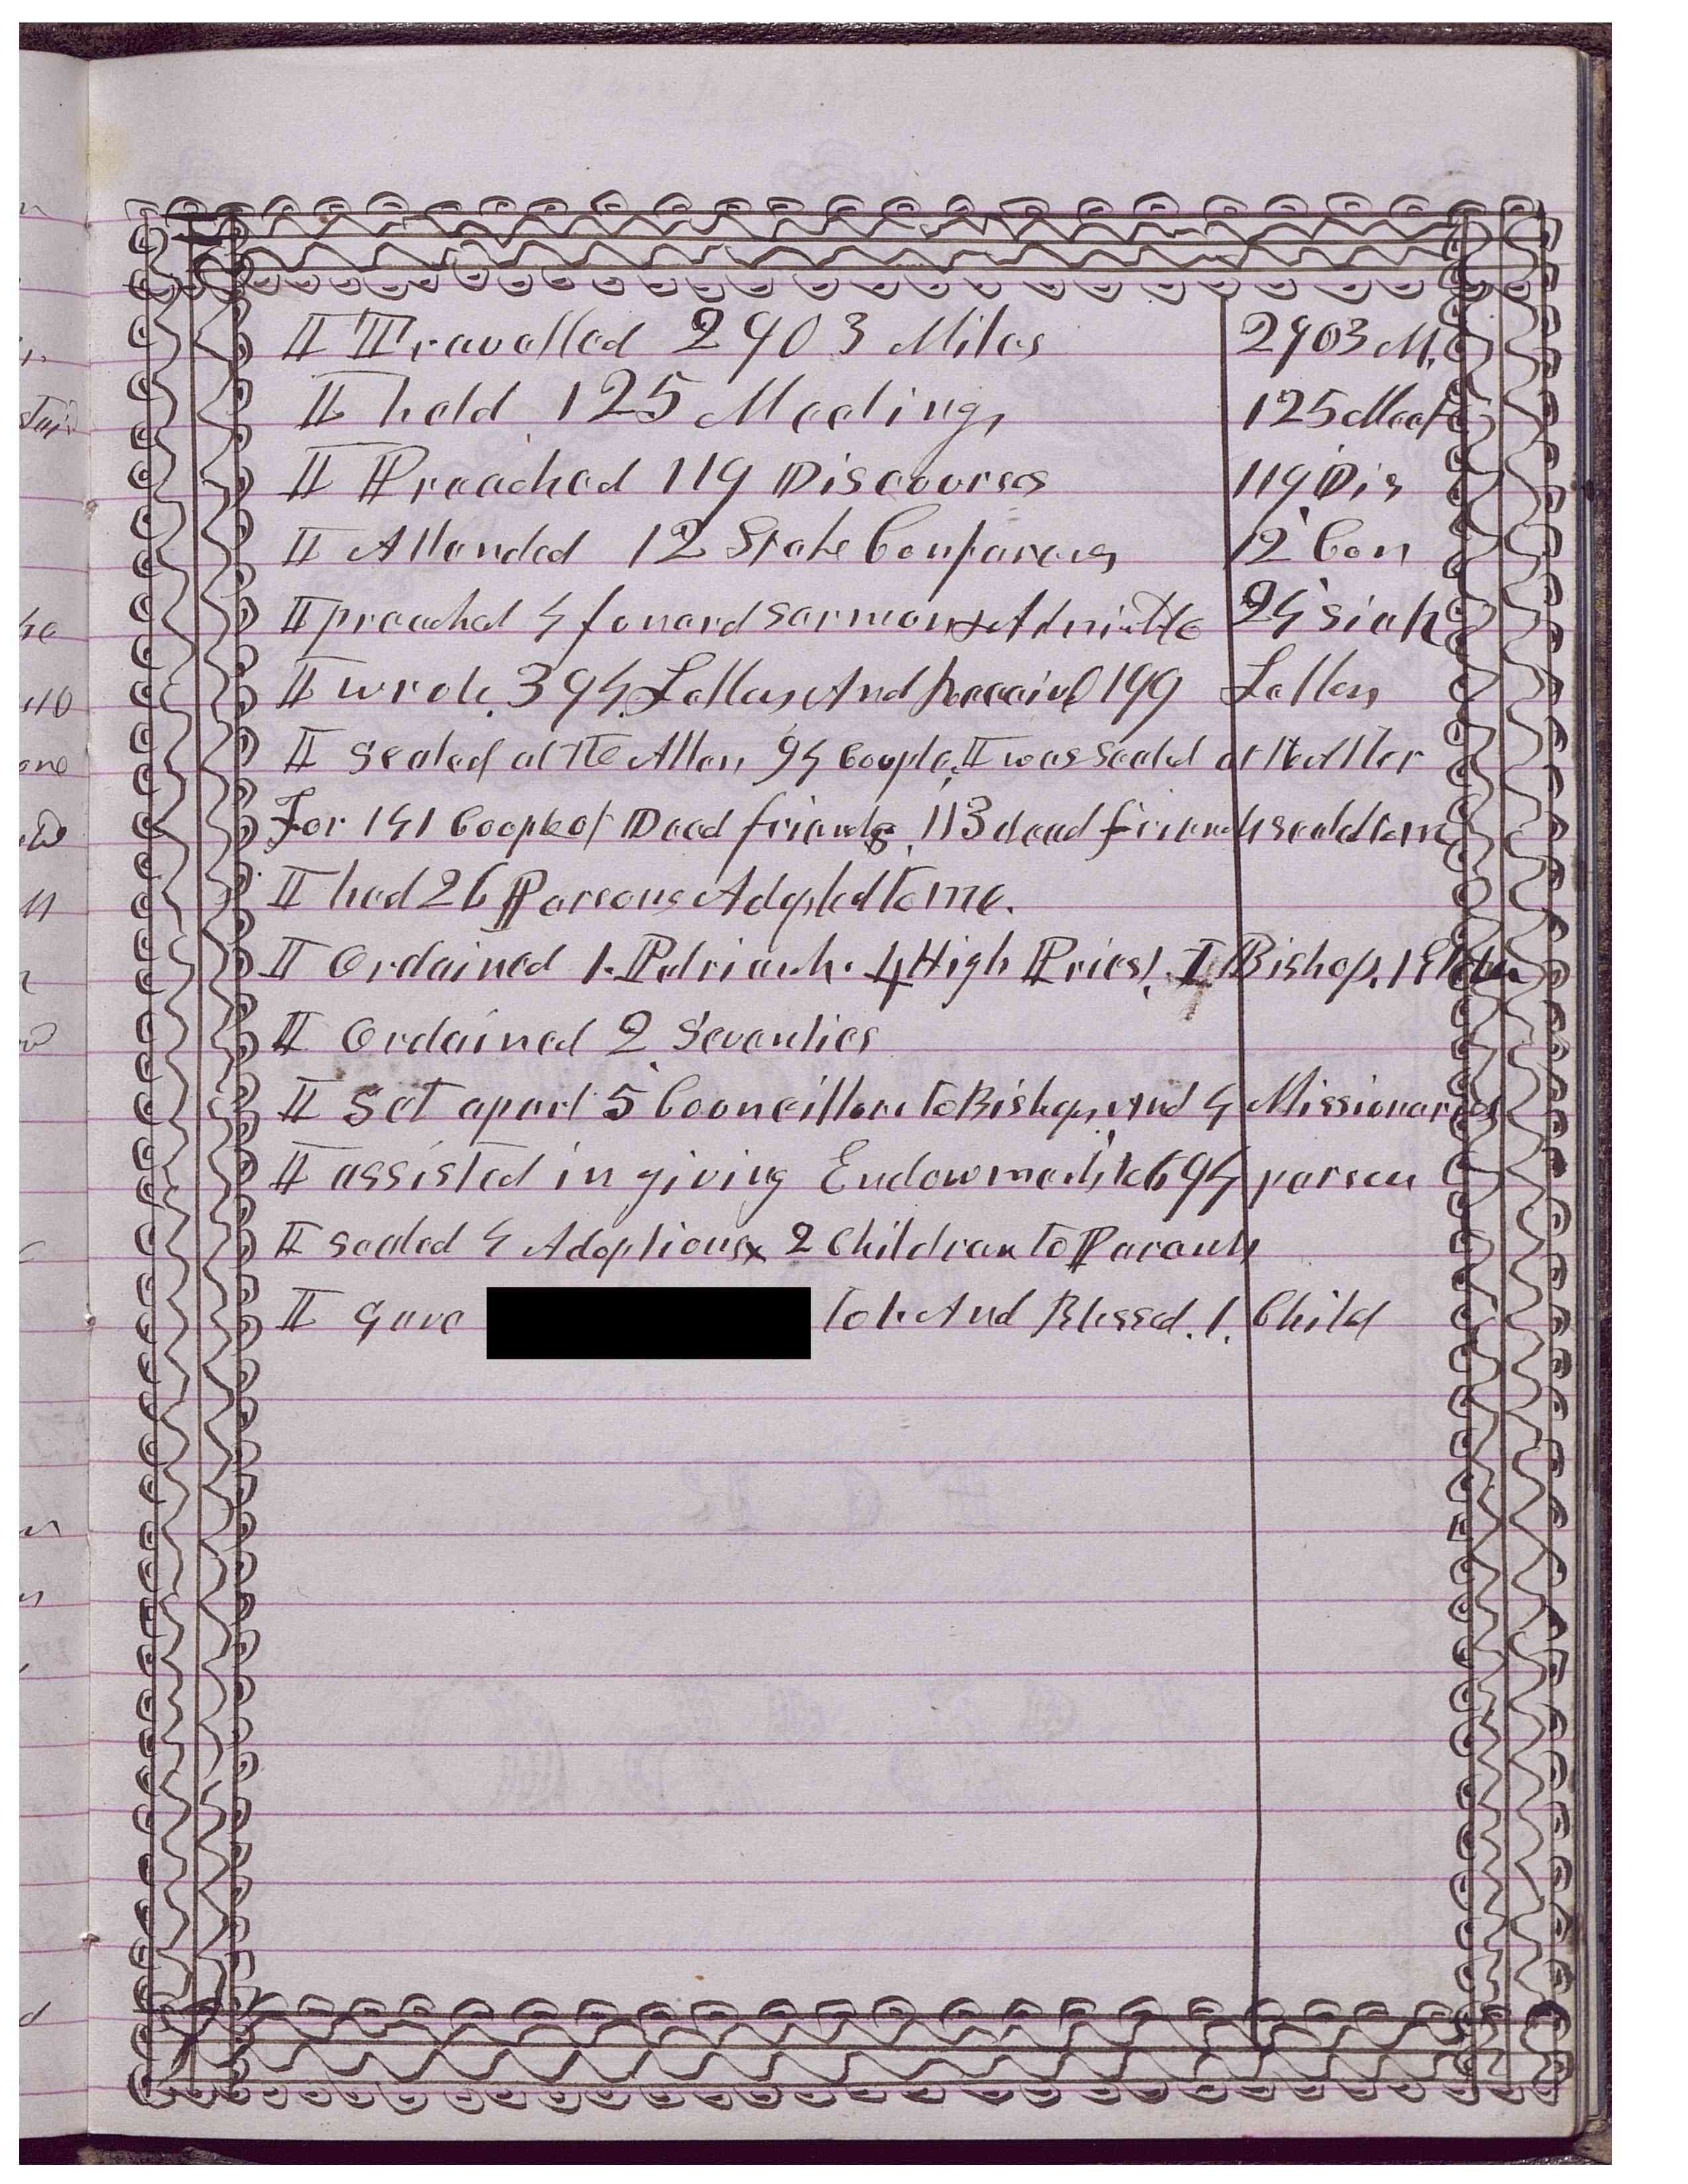 I Travelled 2903 Miles 2903 M.
I held 125 Meetings 125 Meet
I Preached 119 Discourses 119 Dis
I Attended 12 Stake Conferences 12 Con
I preached 4 funeral sermons & Admin to 24 sick
I wrote 394 Letters And Received 199 Letters
I sealed at the Altar 94 Couple. I was sealed at the Altar
For 141 Couple of Dead friends 113 dead friends sealed to me
I had 26 Persons Adopted to me.
I Ordained 1 Patriarch. 4 High Priest, 1 Bishop, 1 Elder
I Ordained 2 Seventies
I Set apart 5 Councillors to Bishops And 4 Missionaries
I assisted in giving Endowments to 694 person
I sealed 4 Adoptions & 2 Children to Parents
I gave to 1. And Blessed. 1. Child